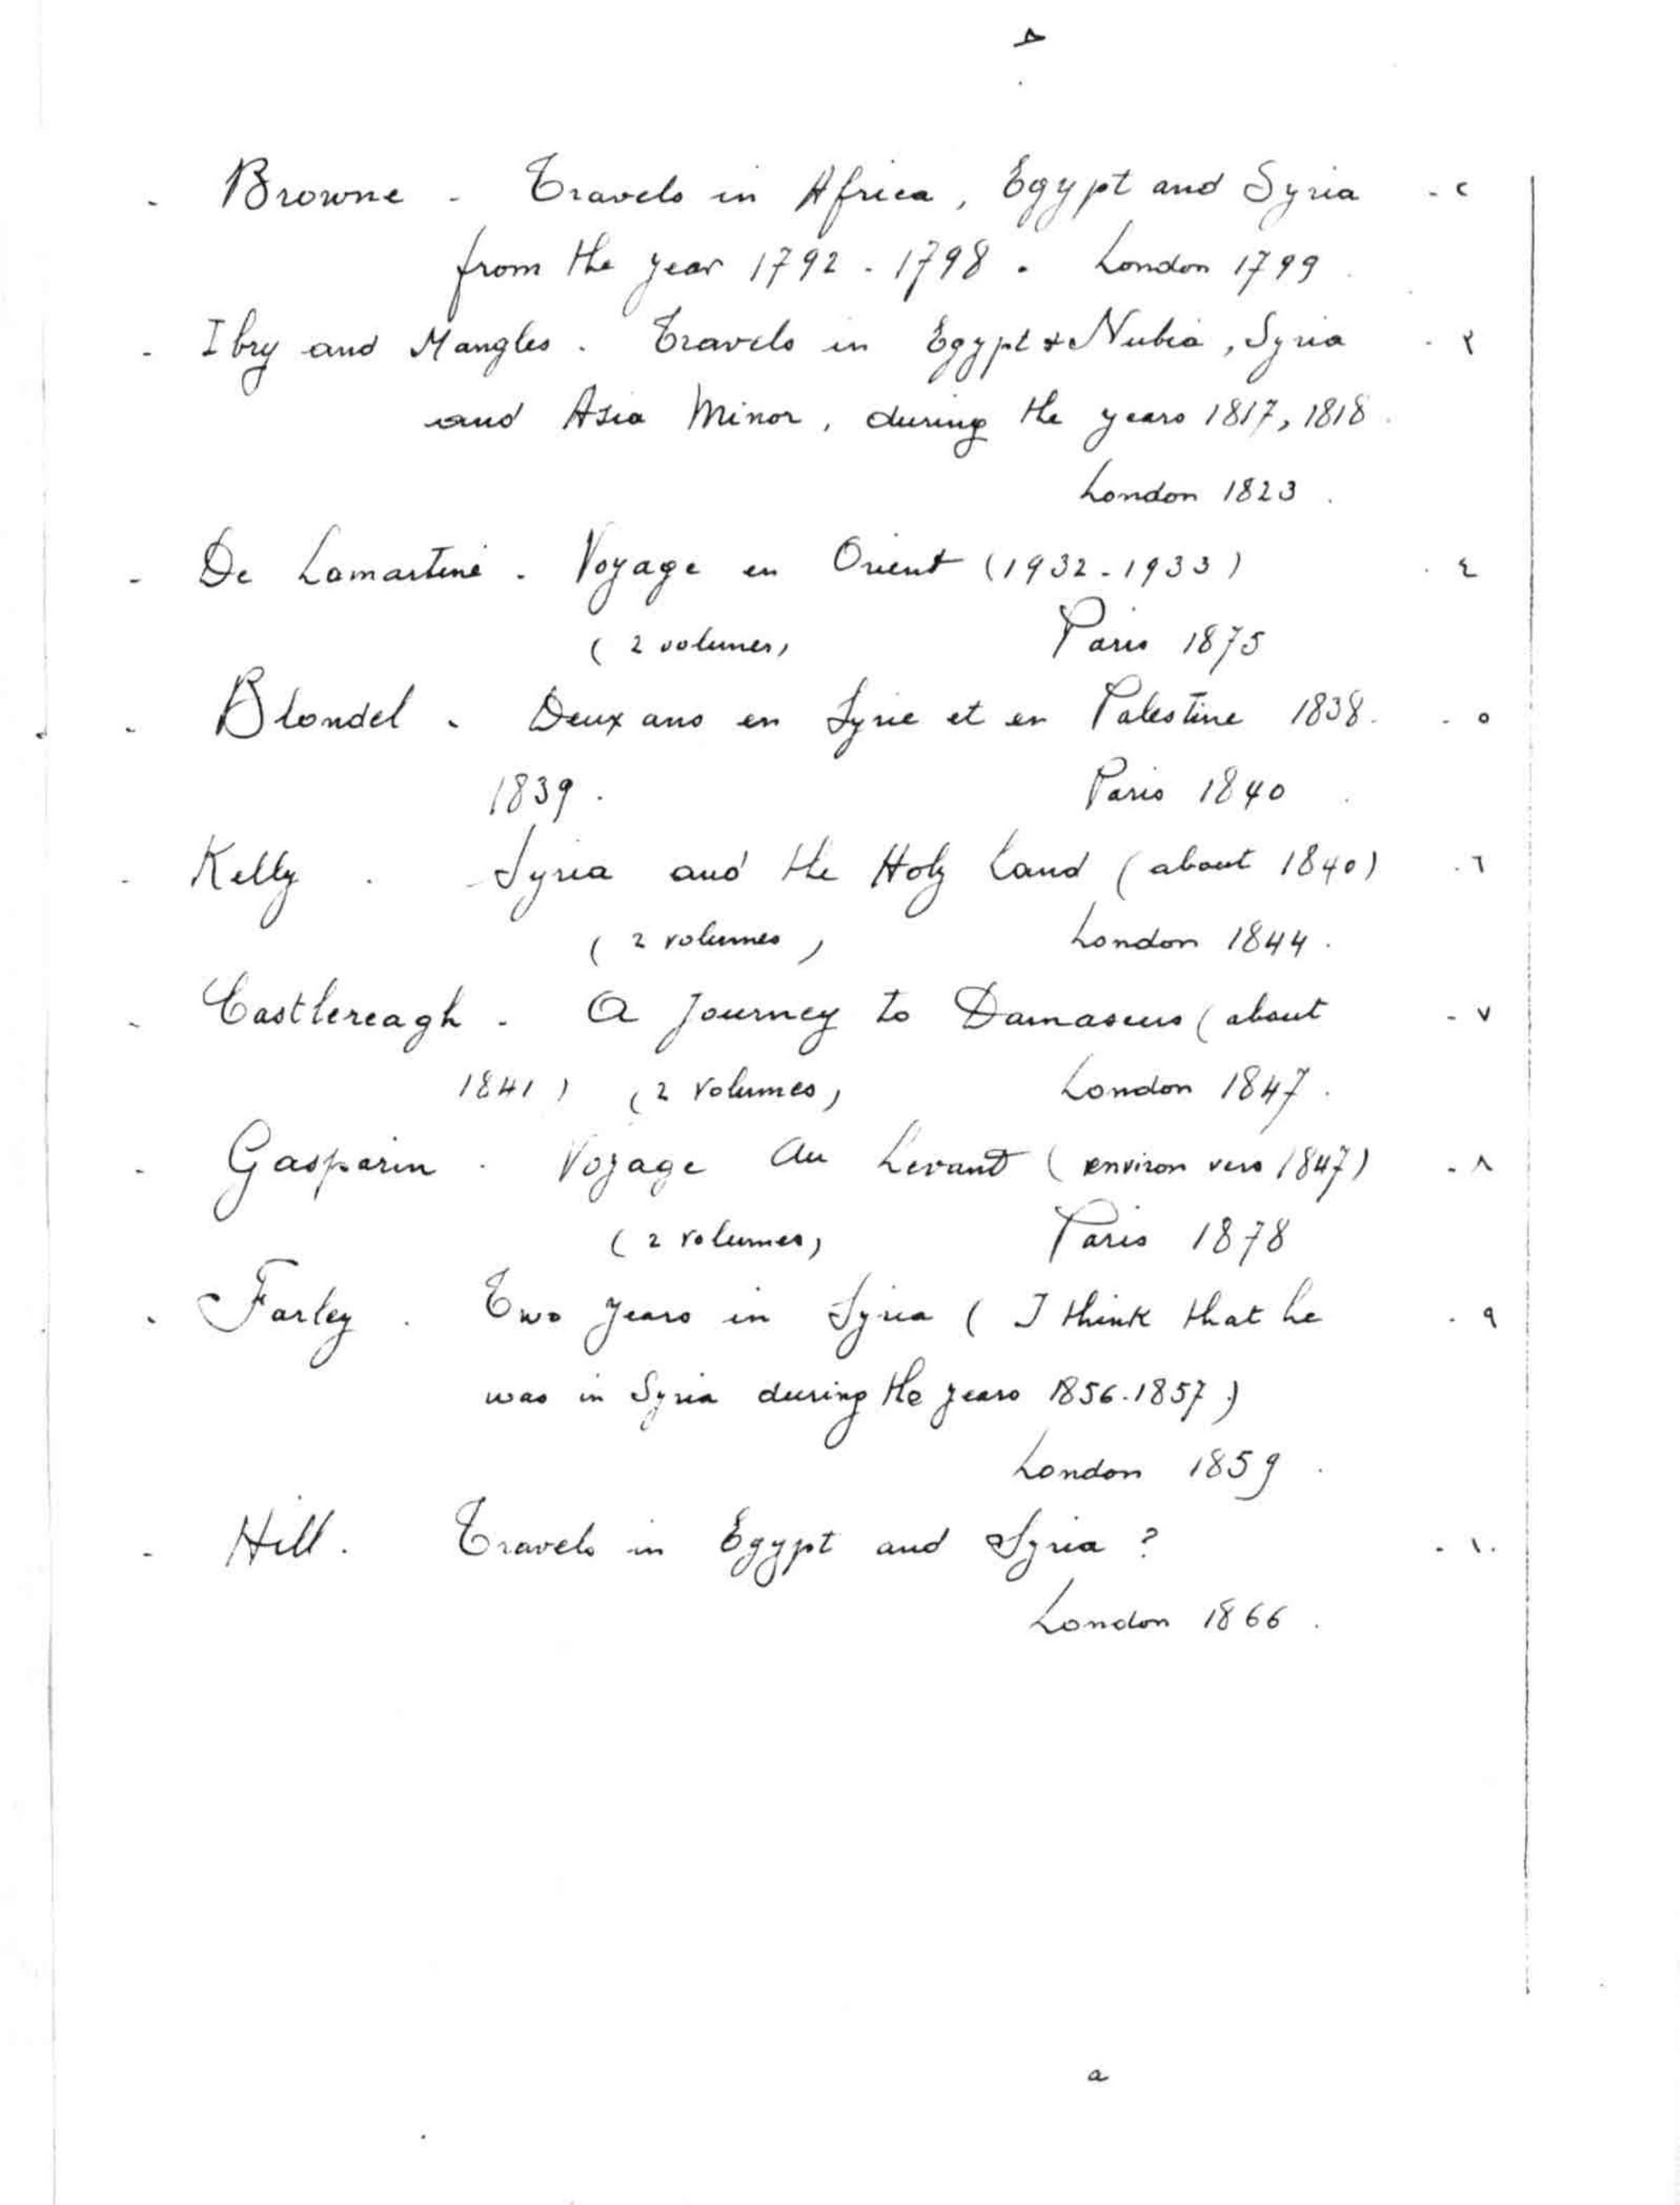 - Browne - Travels in Africa, Egypt and Syria - ٢
from the year 1792 - 1798. London 1799.
- Ibry and Mangles. Travels in Egypt & Nubia, Syria - ٣
and Asia Minor, during the years 1817, 1818.
London 1823.
- De Lamartine. Voyage en Orient (1932-1933) - ٤
(2 volumes) Paris 1875
- Blondel. Deux ans en Syrie et en Palestine 1838. - ٥
1839. Paris 1840.
- Kelly. Syria and the Holy Land (about 1840) - ٦
(2 volumes) London 1844.
- Castlereagh. A Journey to Damascus (about - ٧
1841) (2 volumes) London 1847.
- Gasparin. Voyage Au Levant (environ vers 1847) - ٨
(2 volumes) Paris 1878
- Farley. Two years in Syria (I think that he - ٩
was in Syria during the years 1856-1857.)
London 1859.
- Hill. Travels in Egypt and Syria? - ١٠
London 1866.